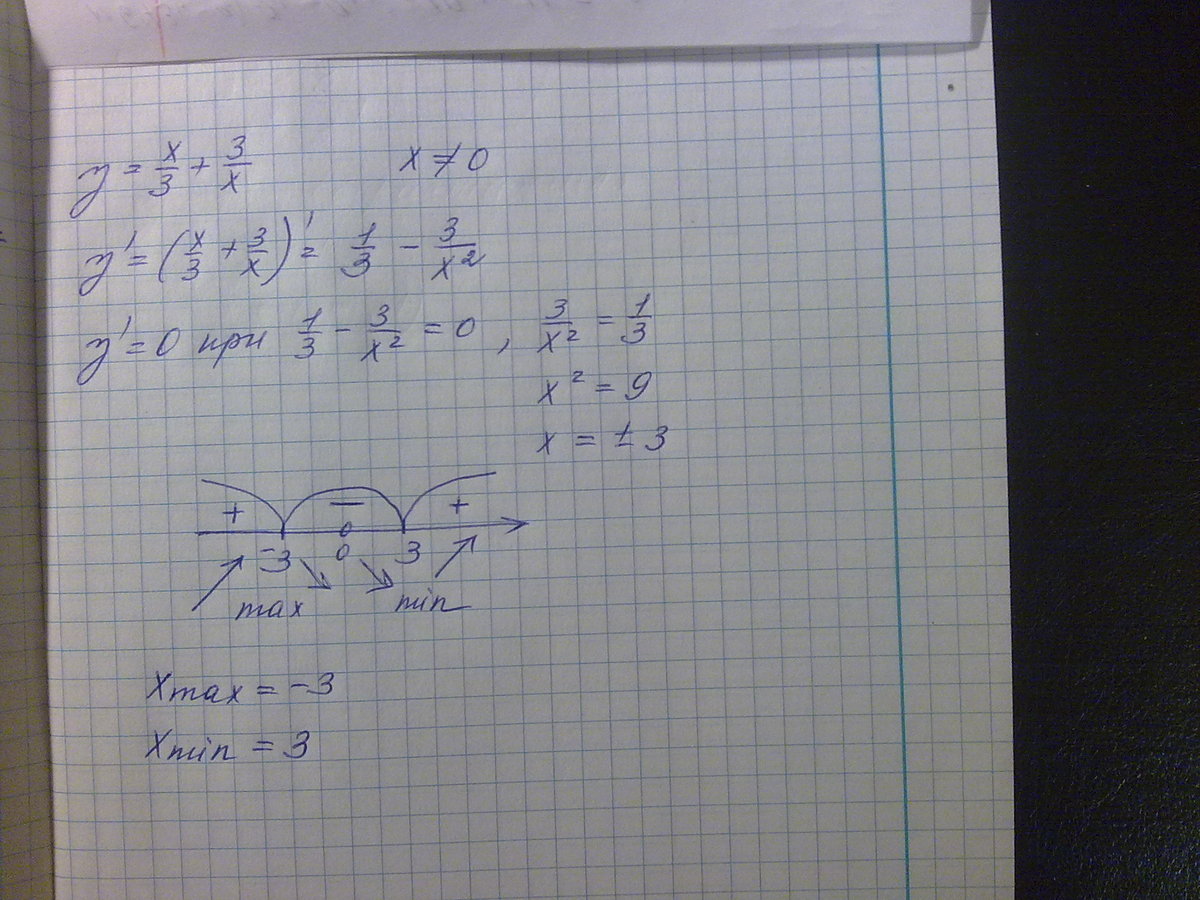 y = x/3 + 3/x x ≠ 0
y' = (x/3 + 3/x)' = 1/3 - 3/x²
y' = 0 при 1/3 - 3/x² = 0 , 3/x² = 1/3
x² = 9
x = ± 3
+ − +
-3 0 3
max min
xmax = -3
xmin = 3